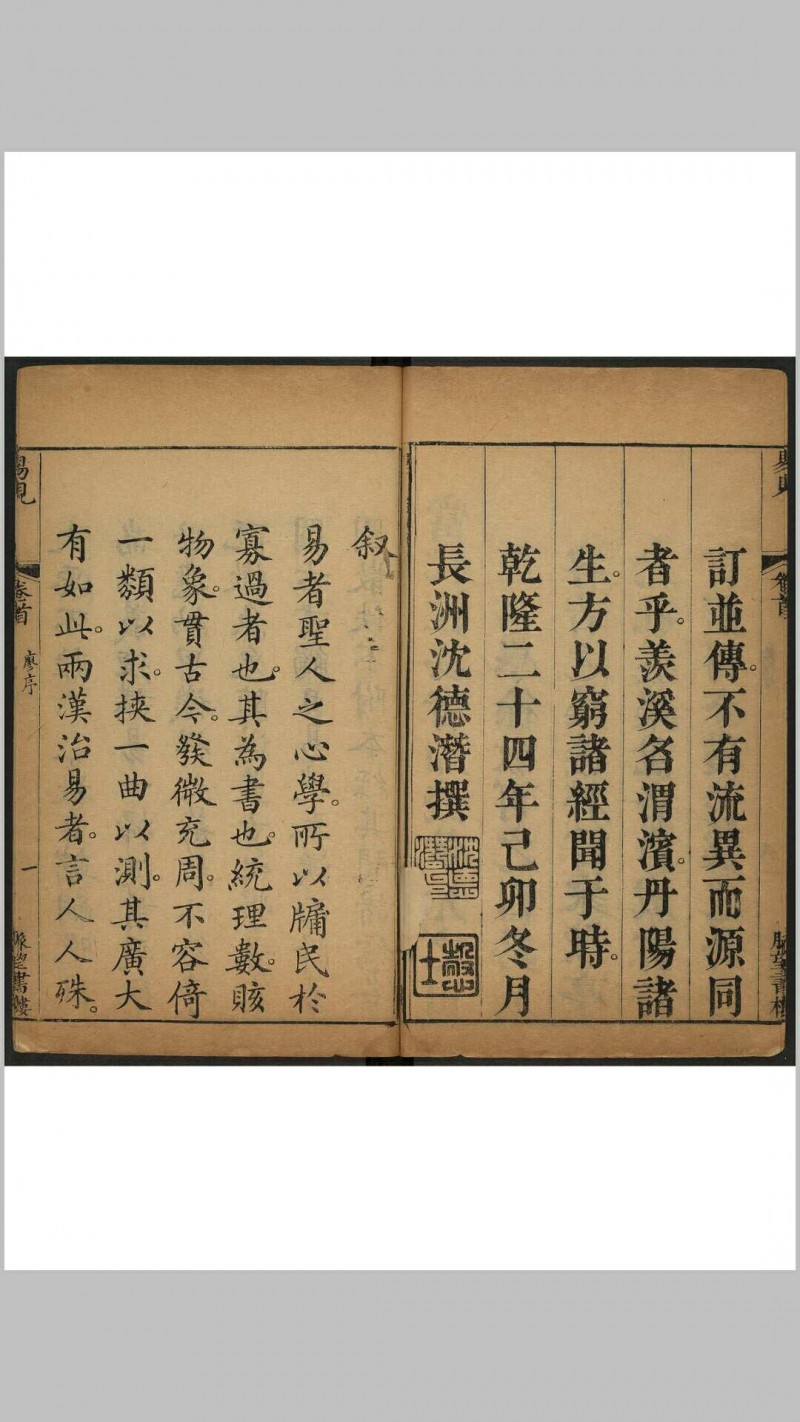 易見
卷首
脈望書樓
訂並傳。不有流異而源同
者乎。羨溪名渭濱。丹陽諸
生。方以窮諸經聞于時。
乾隆二十四年己卯冬月
長洲沈德潛撰
叙
易者聖人之心學。所以牖民於
寡過者也。其為書也。統理數。賅
物象。貫古今。發微充周。不容倚
一類以求。挾一曲以測。其廣大
有如此。兩漢治易者。言人人殊。
易見
卷首
廖序
一
脈望書樓